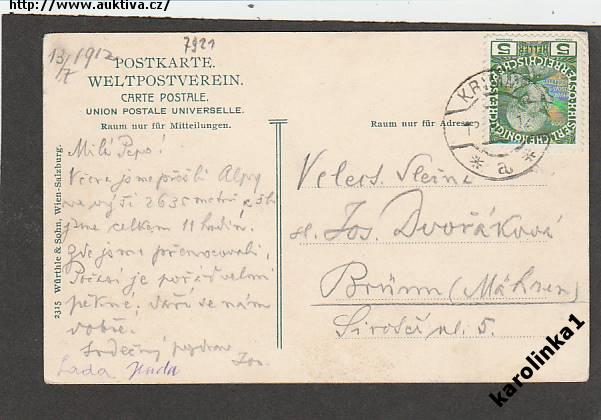 http://www.auktiva.cz/
13/7 1912
7921
POSTKARTE.
WELTPOSTVEREIN.
CARTE POSTALE.
UNION POSTALE UNIVERSELLE.
Raum nur für Mitteilungen.
Raum nur für Adresse.
Milá Pepo!
Včera jsme přešli Alpy
ve výši 2635 metrů a šli
jsme celkem 11 hodin.
Zde jsme přenocovali.
Počasí je pořád velmi
pěkné, daří se nám
dobře.
Srdečný pozdrav
Jos.
Lada
Velect. Slečna
sl. Jos. Dvořáková
Brünn (Mähren)
Široká ul. 5.
2315 Würthle & Sohn, Wien-Salzburg.
5 5
a
karolinka1